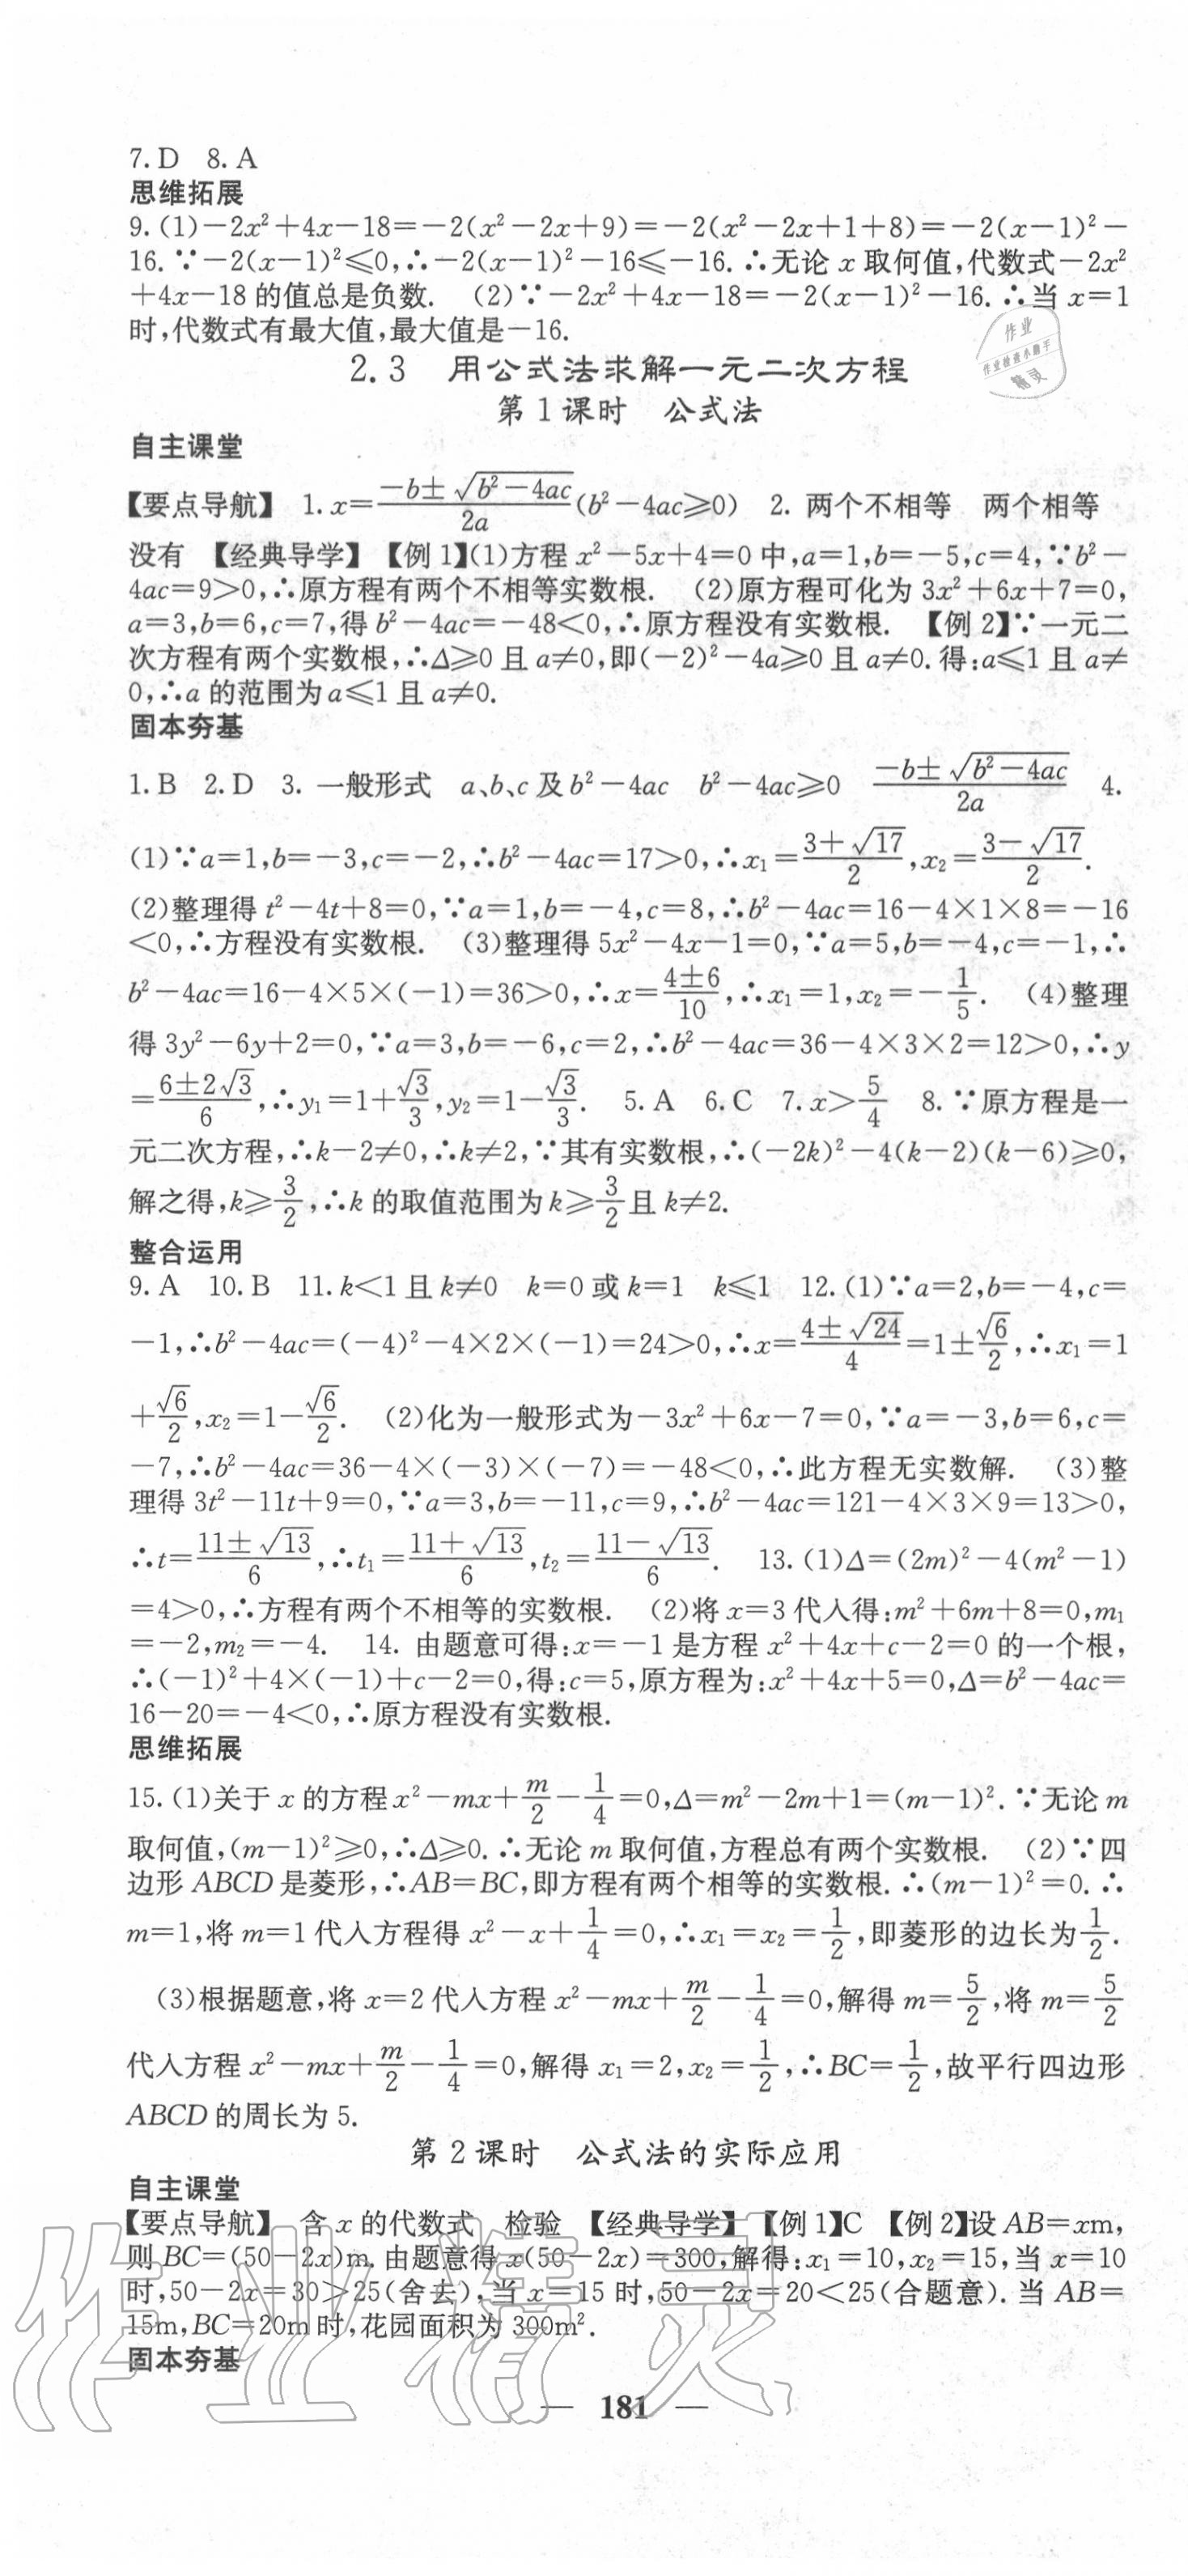 7. D　8. A
思维拓展
9. (1)−2x²+4x−18=−2(x²−2x+9)=−2(x²−2x+1+8)=−2(x−1)²−
16. ∵−2(x−1)²≤0,∴−2(x−1)²−16≤−16. ∴无论 x 取何值,代数式−2x²
+4x−18 的值总是负数.　(2)∵−2x²+4x−18=−2(x−1)²−16. ∴当 x=1
时,代数式有最大值,最大值是−16.
作业
作业检查小助手
精灵
2.3　用公式法求解一元二次方程
第1课时　公式法
自主课堂
【要点导航】　1. x=\frac{-b±\sqrt{b²-4ac}}{2a}(b²−4ac≥0)　2. 两个不相等　两个相等
没有　【经典导学】【例1】(1)方程 x²−5x+4=0 中,a=1,b=−5,c=4,∵b²−
4ac=9>0,∴原方程有两个不相等实数根.　(2)原方程可化为 3x²+6x+7=0,
a=3,b=6,c=7,得 b²−4ac=−48<0,∴原方程没有实数根.　【例2】∵一元二
次方程有两个实数根,∴Δ≥0 且 a≠0,即(−2)²−4a≥0 且 a≠0. 得:a≤1 且 a≠
0,∴a 的范围为 a≤1 且 a≠0.
固本夯基
1. B　2. D　3. 一般形式　a、b、c 及 b²−4ac　b²−4ac≥0　\frac{-b±\sqrt{b²-4ac}}{2a}　4.
(1)∵a=1,b=−3,c=−2,∴b²−4ac=17>0,∴x₁=\frac{3+\sqrt{17}}{2},x₂=\frac{3-\sqrt{17}}{2}.
(2)整理得 t²−4t+8=0,∵a=1,b=−4,c=8,∴b²−4ac=16−4×1×8=−16
<0,∴方程没有实数根.　(3)整理得 5x²−4x−1=0,∵a=5,b=−4,c=−1,∴
b²−4ac=16−4×5×(−1)=36>0,∴x=\frac{4±6}{10},∴x₁=1,x₂=−\frac{1}{5}.　(4)整理
得 3y²−6y+2=0,∵a=3,b=−6,c=2,∴b²−4ac=36−4×3×2=12>0,∴y
=\frac{6±2\sqrt{3}}{6},∴y₁=1+\frac{\sqrt{3}}{3},y₂=1−\frac{\sqrt{3}}{3}.　5. A　6. C　7. x>\frac{5}{4}　8. ∵原方程是一
元二次方程,∴k−2≠0,∴k≠2,∵其有实数根,∴(−2k)²−4(k−2)(k−6)≥0,
解之得,k≥\frac{3}{2},∴k 的取值范围为 k≥\frac{3}{2}且 k≠2.
整合运用
9. A　10. B　11. k<1 且 k≠0　k=0 或 k=1　k≤1　12. (1)∵a=2,b=−4,c=
−1,∴b²−4ac=(−4)²−4×2×(−1)=24>0,∴x=\frac{4±\sqrt{24}}{4}=1±\frac{\sqrt{6}}{2},∴x₁=1
+\frac{\sqrt{6}}{2},x₂=1−\frac{\sqrt{6}}{2}.　(2)化为一般形式为−3x²+6x−7=0,∵a=−3,b=6,c=
−7,∴b²−4ac=36−4×(−3)×(−7)=−48<0,∴此方程无实数解.　(3)整
理得 3t²−11t+9=0,∵a=3,b=−11,c=9,∴b²−4ac=121−4×3×9=13>0,
∴t=\frac{11±\sqrt{13}}{6},∴t₁=\frac{11+\sqrt{13}}{6},t₂=\frac{11-\sqrt{13}}{6}.　13. (1)Δ=(2m)²−4(m²−1)
=4>0,∴方程有两个不相等的实数根.　(2)将 x=3 代入得:m²+6m+8=0,m₁
=−2,m₂=−4.　14. 由题意可得:x=−1 是方程 x²+4x+c−2=0 的一个根,
∴(−1)²+4×(−1)+c−2=0,得:c=5,原方程为:x²+4x+5=0,Δ=b²−4ac=
16−20=−4<0,∴原方程没有实数根.
思维拓展
15. (1)关于 x 的方程 x²−mx+\frac{m}{2}−\frac{1}{4}=0,Δ=m²−2m+1=(m−1)². ∵无论 m
取何值,(m−1)²≥0,∴Δ≥0. ∴无论 m 取何值,方程总有两个实数根.　(2)∵四
边形 ABCD 是菱形,∴AB=BC,即方程有两个相等的实数根. ∴(m−1)²=0. ∴
m=1,将 m=1 代入方程得 x²−x+\frac{1}{4}=0,∴x₁=x₂=\frac{1}{2},即菱形的边长为\frac{1}{2}.
(3)根据题意,将 x=2 代入方程 x²−mx+\frac{m}{2}−\frac{1}{4}=0,解得 m=\frac{5}{2},将 m=\frac{5}{2}
代入方程 x²−mx+\frac{m}{2}−\frac{1}{4}=0,解得 x₁=2,x₂=\frac{1}{2},∴BC=\frac{1}{2},故平行四边形
ABCD 的周长为 5.
第2课时　公式法的实际应用
自主课堂
【要点导航】　含 x 的代数式　检验　【经典导学】【例1】C　【例2】设 AB=xm,
则 BC=(50−2x)m. 由题意得 x(50−2x)=300,解得:x₁=10,x₂=15,当 x=10
时,50−2x=30>25(舍去),当 x=15 时,50−2x=20<25(合题意). 当 AB=
15m,BC=20m 时,花园面积为 300m².
固本夯基
— 181 —
作业精灵